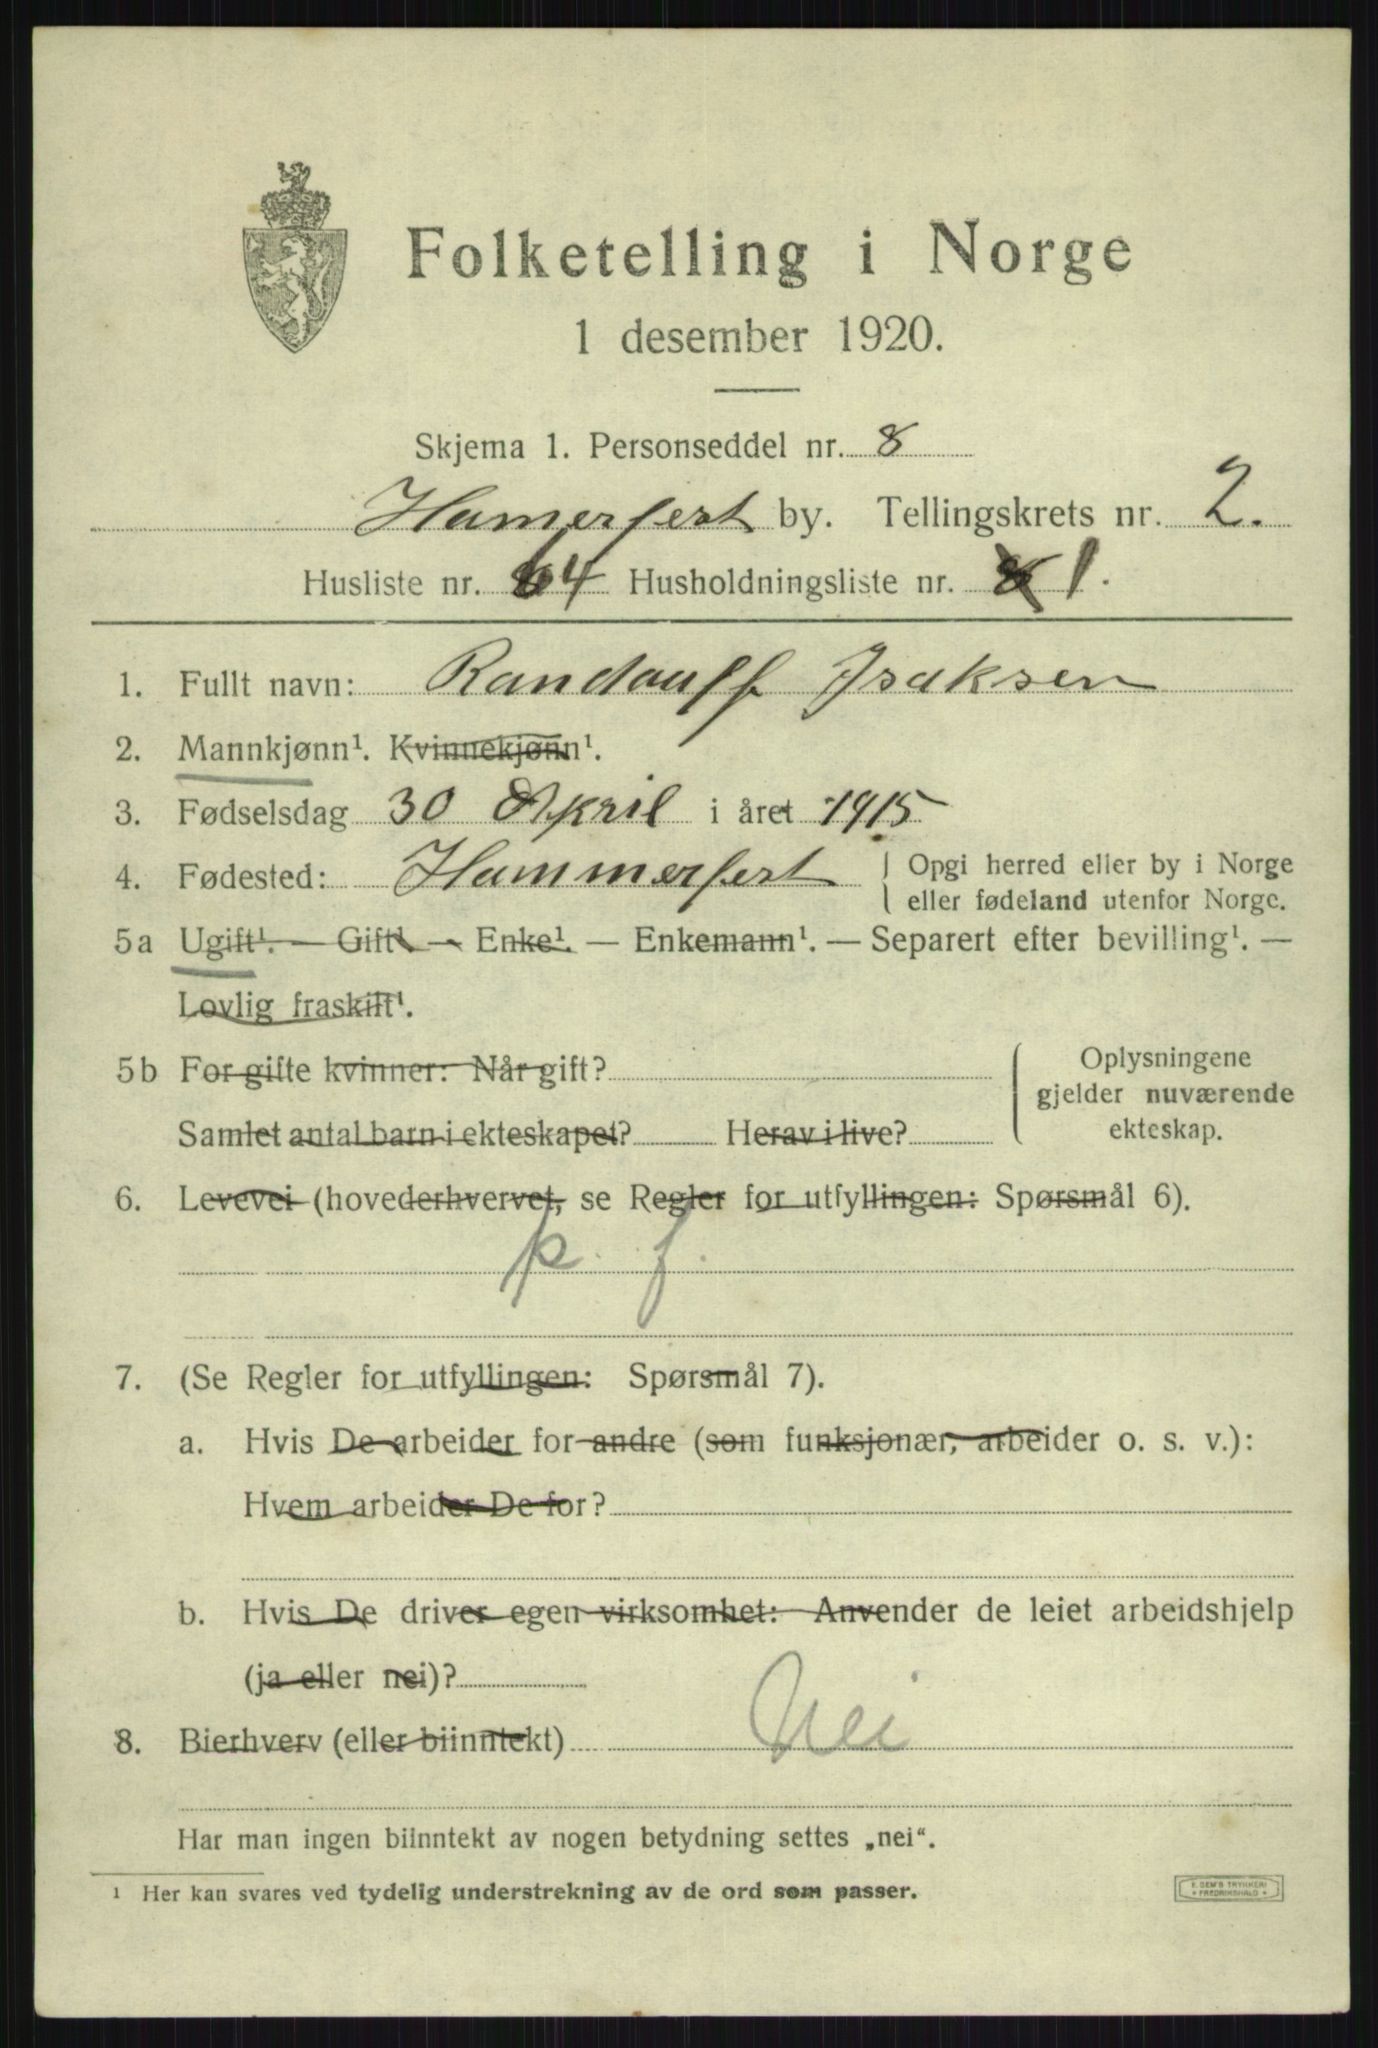 Folketelling i Norge
1 desember 1920.
Skjema 1. Personseddel nr. 8
Hamerfest by. Tellingskrets nr. 2.
Husliste nr. 64 Husholdningsliste nr. 8 1.
1. Fullt navn: Randoulf Isaksen
2. Mannkjønn¹. Kvinnekjønn¹.
3. Fødselsdag 30 April i året 1915
4. Fødested: Hammerfest { Opgi herred eller by i Norge
eller fødeland utenfor Norge.
5a Ugift¹. — Gift¹ — Enke¹. — Enkemann¹. — Separert efter bevilling¹. —
Lovlig fraskilt¹.
5b For gifte kvinner: Når gift?
Samlet antal barn i ekteskapet? Herav i live?
Oplysningene
gjelder nuværende
ekteskap.
6. Levevei (hovederhvervet, se Regler for utfyllingen: Spørsmål 6).
p. f.
7. (Se Regler for utfyllingen: Spørsmål 7).
a. Hvis De arbeider for andre (som funksjonær, arbeider o. s. v.):
Hvem arbeider De for?
b. Hvis De driver egen virksomhet: Anvender de leiet arbeidshjelp
(ja eller nei)?
8. Bierhverv (eller biinntekt) Nei
Har man ingen biinntekt av nogen betydning settes „nei“.
¹ Her kan svares ved tydelig understrekning av de ord som passer.
E. SEM'S TRYKKERI
FREDRIKSHALD